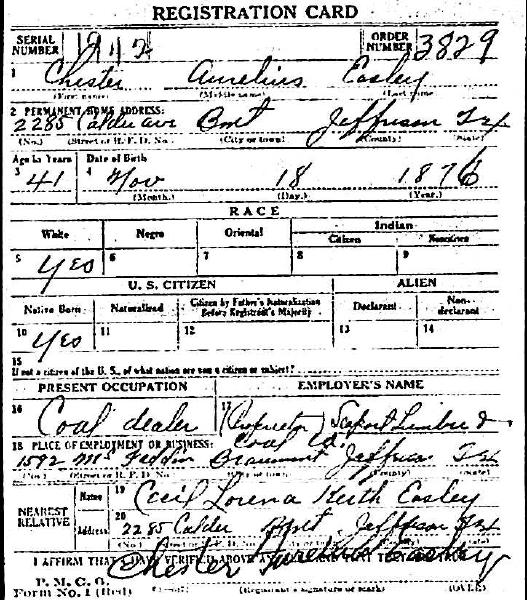 REGISTRATION CARD
SERIAL NUMBER 1912 ORDER NUMBER 3829
1 Chester Aurelius Easley
(First name) (Middle name) (Last name)
2 PERMANENT HOME ADDRESS:
2285 Calder Ave Bmt Jefferson Tex
(No.) (Street or R. F. D. No.) (City or town) (County) (State)
Age in Years Date of Birth
3 41 4 Nov 18 1876
(Month.) (Day.) (Year.)
RACE
White Negro Oriental Indian
Citizen Noncitizen
5 Yes 6 7 8 9
U. S. CITIZEN ALIEN
Native Born Naturalized Citizen by Father's Naturalization Before Registrant's Majority Declarant Non-declarant
10 Yes 11 12 13 14
15
If not a citizen of the U. S., of what nation are you a citizen or subject?
PRESENT OCCUPATION EMPLOYER'S NAME
16 Coal dealer 17 (Proprietor) Lumber &
Coal Co
18 PLACE OF EMPLOYMENT OR BUSINESS:
Beaumont Jefferson Tex
(No.) (Street or R. F. D. No.) (City or town) (County) (State)
NEAREST RELATIVE
Name 19 Cecil Lorena Keith Easley
Address 20 2285 Calder Bmt. Jefferson Tex
(No.) (Street or R. F. D. No.) (City or town) (County) (State)
I AFFIRM THAT I HAVE VERIFIED ABOVE ANSWERS AND THAT THEY ARE TRUE
P. M. G. O.
Form No. 1 (Red) Chester Aurelius Easley
(Registrant's signature or mark) (OVER)